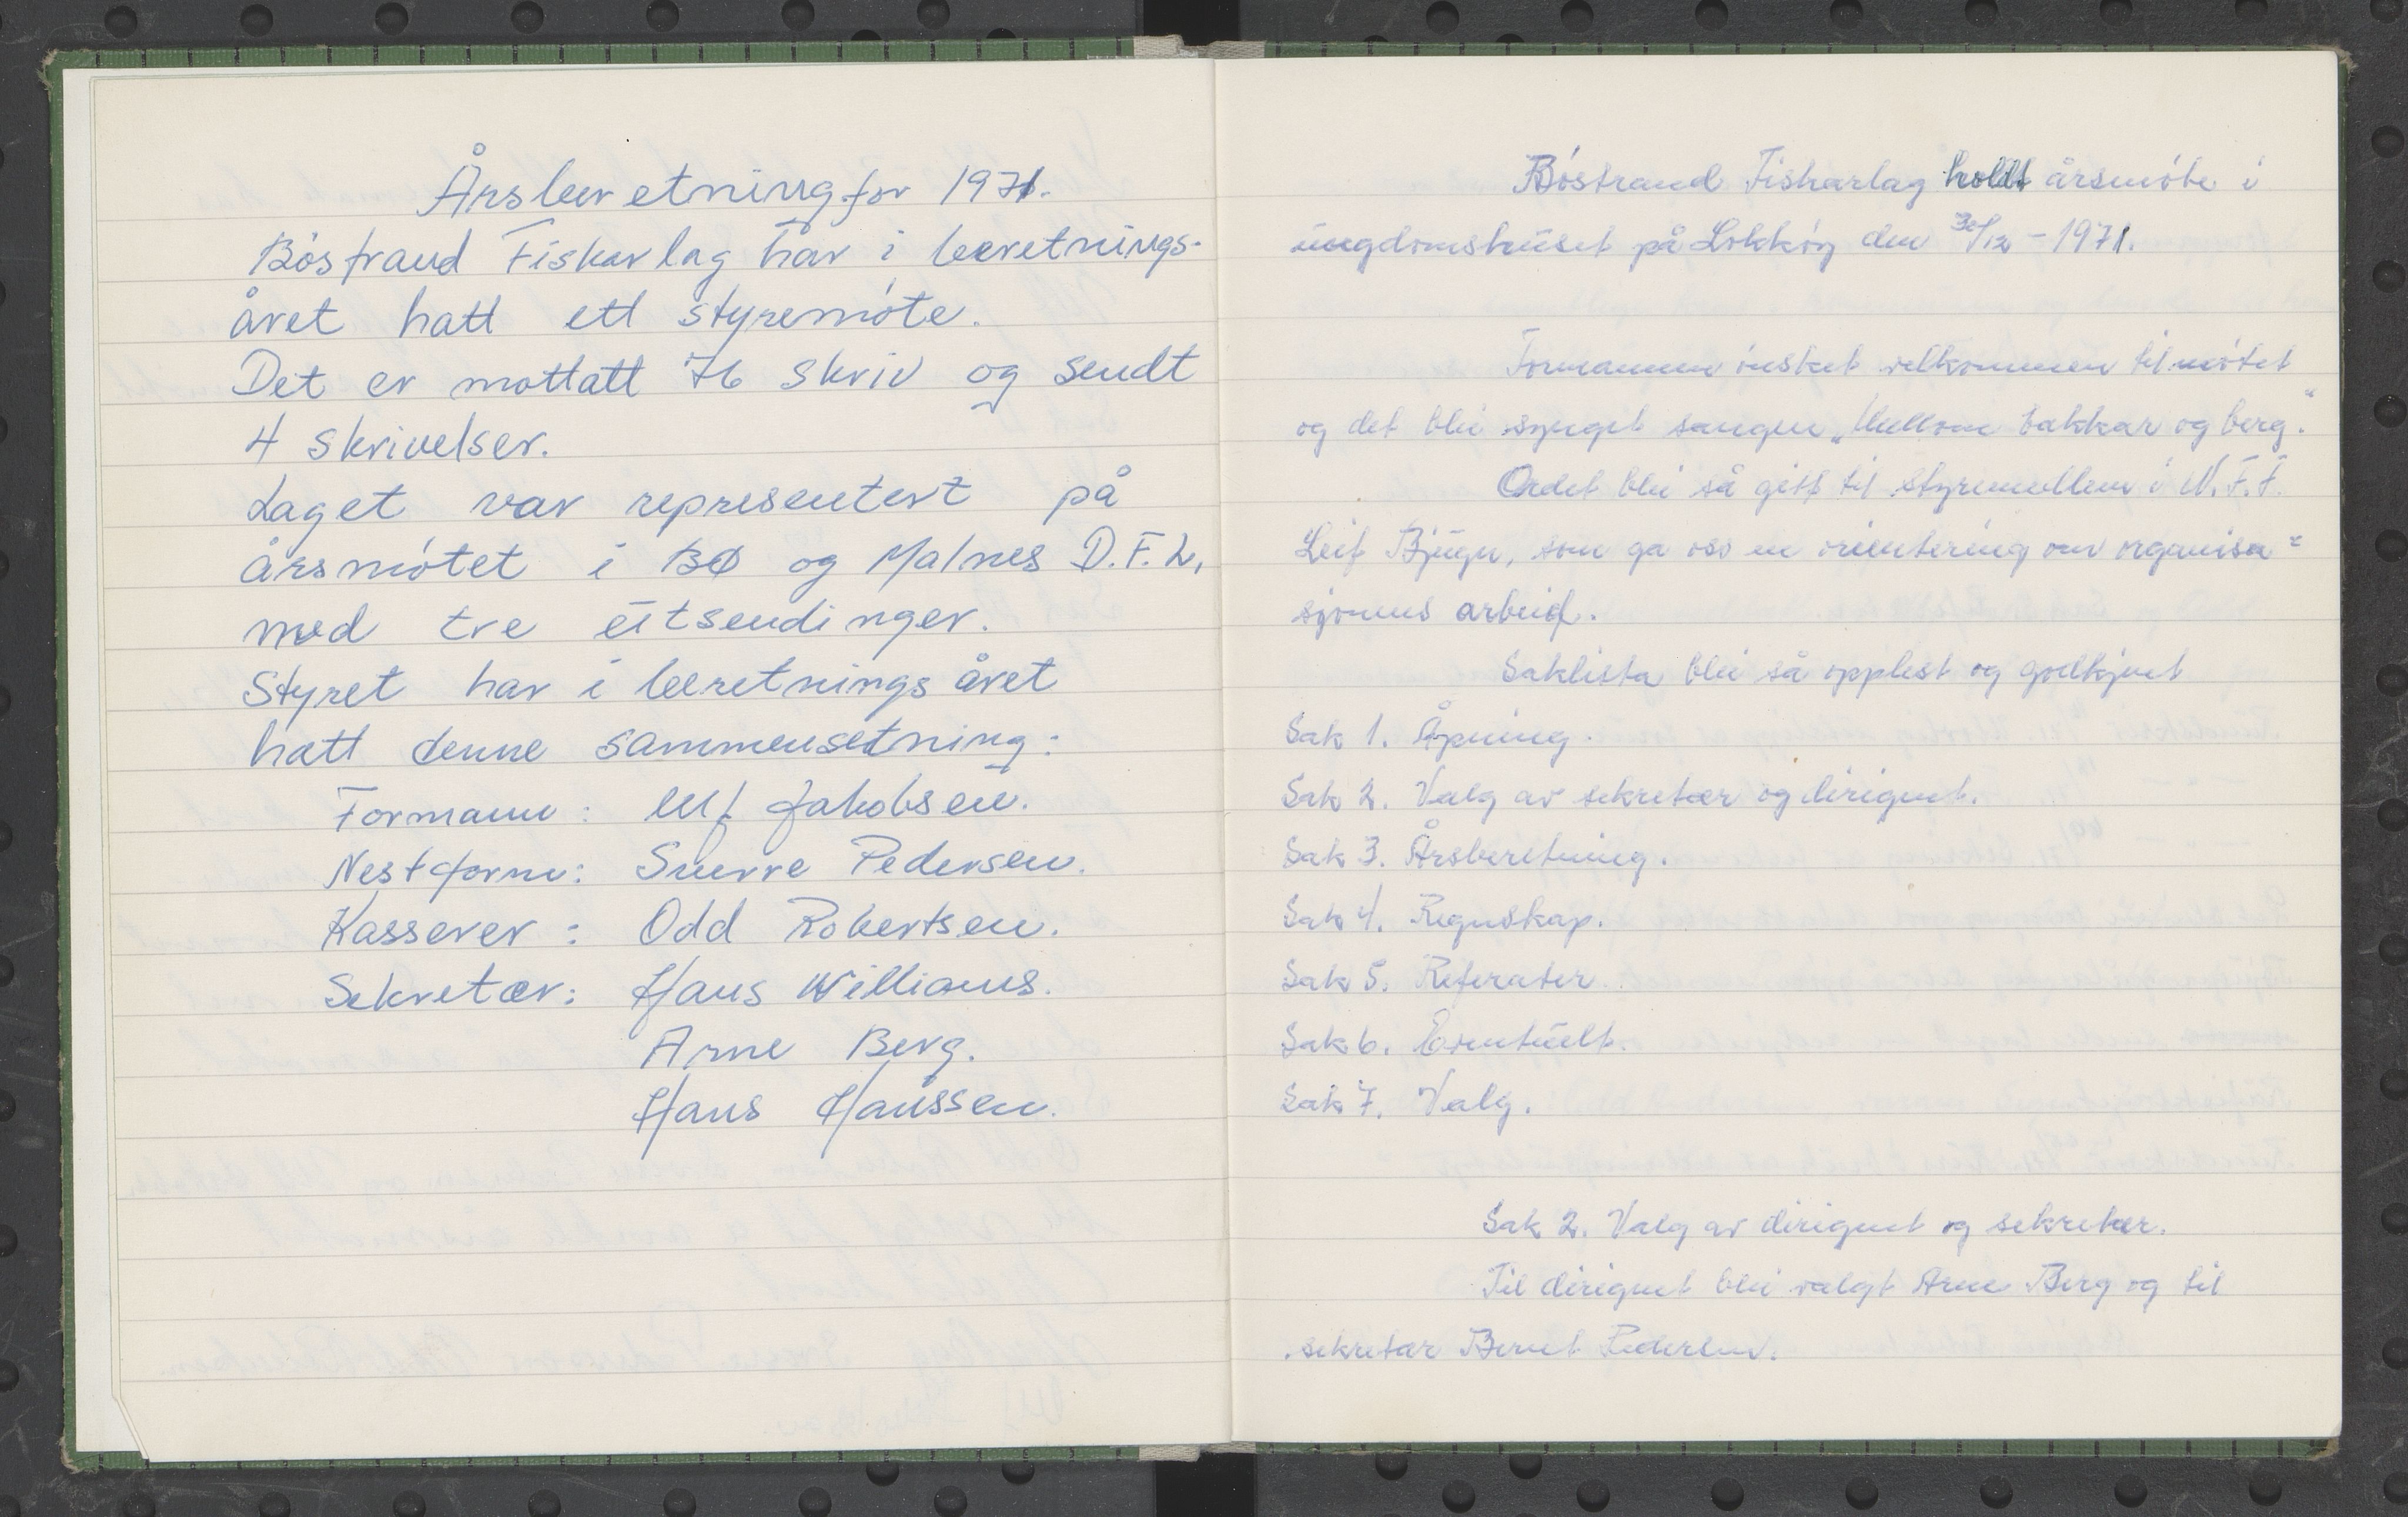 Årsberetning for 1971.
Bøstrand Fiskarlag har i beretnings-
året hatt ett styremøte.
Det er mottatt 76 skriv og sendt
4 skrivelser.
Laget var representert på
årsmøtet i BØ og Malnes D.F.L,
med tre utsendinger.
Styret har i beretningsåret
hatt denne sammensetning:
Formann: Ulf Jakobsen.
Nestform: Sverre Pedersen.
Kasserer: Odd Robertsen.
Sekretær: Hans Williams.
Arne Berg.
Hans Hanssen.
Bøstrand Fiskarlag holdt årsmøte i
ungdomshuset på Lokkøy den 30/12 - 1971.
Formannen ønsket velkommen til møtet
og det blei synget sangen „Mellom bakkar og berg."
Ordet blei så gitt til styremedlem i N.F.F.
Leif Bjugn, som ga oss en orientering om organisa=
sjonens arbeid.
Saklista blei så opplest og godkjent
Sak 1. Åpning.
Sak 2. Valg av sekretær og dirigent.
Sak 3. Årsberetning.
Sak 4. Regnskap.
Sak 5. Referater.
Sak 6. Eventuelt.
Sak 7. Valg.
Sak 2. Valg av dirigent og sekretær.
Til dirigent blei valgt Arne Berg og til
sekretær Bernt Pedersen.